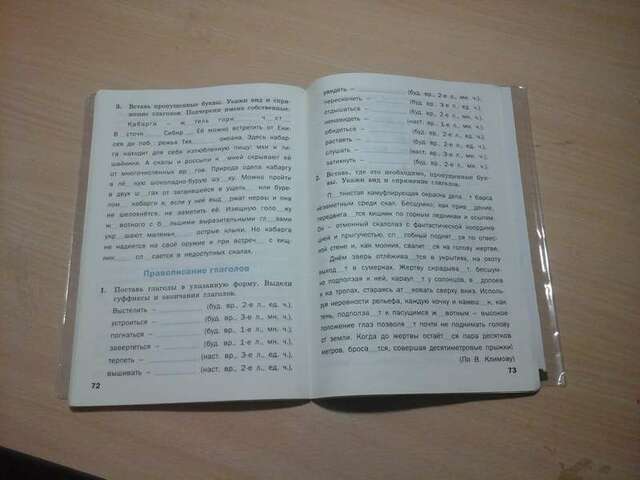 3. Вставь пропущенные буквы. Укажи вид и спря-
жение глаголов. Подчеркни имена собственные.
Кабарга – ж__тель горн__ ч__ст__
В__сточн__ Сибир__. Её можно встретить от Ени-
сея до поб__режья Тих__ океана. Здесь кабар-
га находит для себя излюбленную пищу: мхи и ли-
шайники. А скалы и россыпи к__мней скрывают её
от многочисленных вр__гов. Природа одела кабаргу
в лё__кую шоколадно-бурую шу__ку. Можно пройти
в двух ш__гах от затаившейся в ущель__ или буре-
лом__ кабарги и, если у неё выд__ржат нервы и она
не шелохнётся, не заметить её. Изящную голо__ку
ж__вотного с б__льшими выразительными гл__зами
укр__шают маленьк__ острые клыки. Но кабарга
не надеется на своё оружие и при встреч__ с хищ-
ник__ сп__сается в недоступных скалах.
Правописание глаголов
1. Поставь глаголы в указанную форму. Выдели
суффиксы и окончания глаголов.
Выстелить – (буд. вр., 2-е л., ед. ч.),
устроиться – (буд. вр., 3-е л., мн. ч.),
погнаться – (буд. вр., 2-е л., мн. ч.),
завертеться – (буд. вр., 2-е л., мн. ч.),
терпеть – (наст. вр., 3-е л., ед. ч.),
вышивать – (наст. вр., 2-е л., ед. ч.),
72
увидеть – (буд. вр., 2-е л., мн. ч.),
пересколить – (буд. вр., 2-е л., ед. ч.),
отдышаться – (буд. вр., 2-е л., мн. ч.),
ненавидеть – (наст. вр., 1-е л., мн. ч.),
обидеться – (буд. вр., 2-е л., мн. ч.),
растаять – (буд. вр., 2-е л., ед. ч.),
слушать – (наст. вр., 3-е л., мн. ч.),
затихнуть – (буд. вр., 2-е л., ед. ч.).
2. Вставь, где это необходимо, пропущенные бук-
вы. Укажи вид и спряжение глаголов.
П__тнистая камуфлирующая окраска дела__т барса
незаметным среди скал. Бесшумно, как прив__дение,
передвига__тся хищник по горным ледникам и осыпям.
Он – отменный скалолаз с фантастической координа-
цией и прыгучестью, сп__собный поднят__ся по отвес-
ной стене и, как молния, свалит__ся на голову жертве.
Днём зверь отлёжива__тся в укрытиях, на охоту
выход__т в сумерках. Жертву скрадыва__т, бесшум-
но подползая к ней, караул__т у зас__лённых, д__попоев
и на тропах, стараясь ат__ковать сверху вниз. Исполь-
зуя неровности рельефа, каждую кочку и камеш__к,
тень, подполза__т к пасущимся ж__вотным – высокое
положение глаз позволя__т почти не поднимать голову
от земли. Когда до жертвы остаёт__ся пара десятков
метров, броса__тся, совершая десятиметровые прыжки!
(По В. Климову)
73